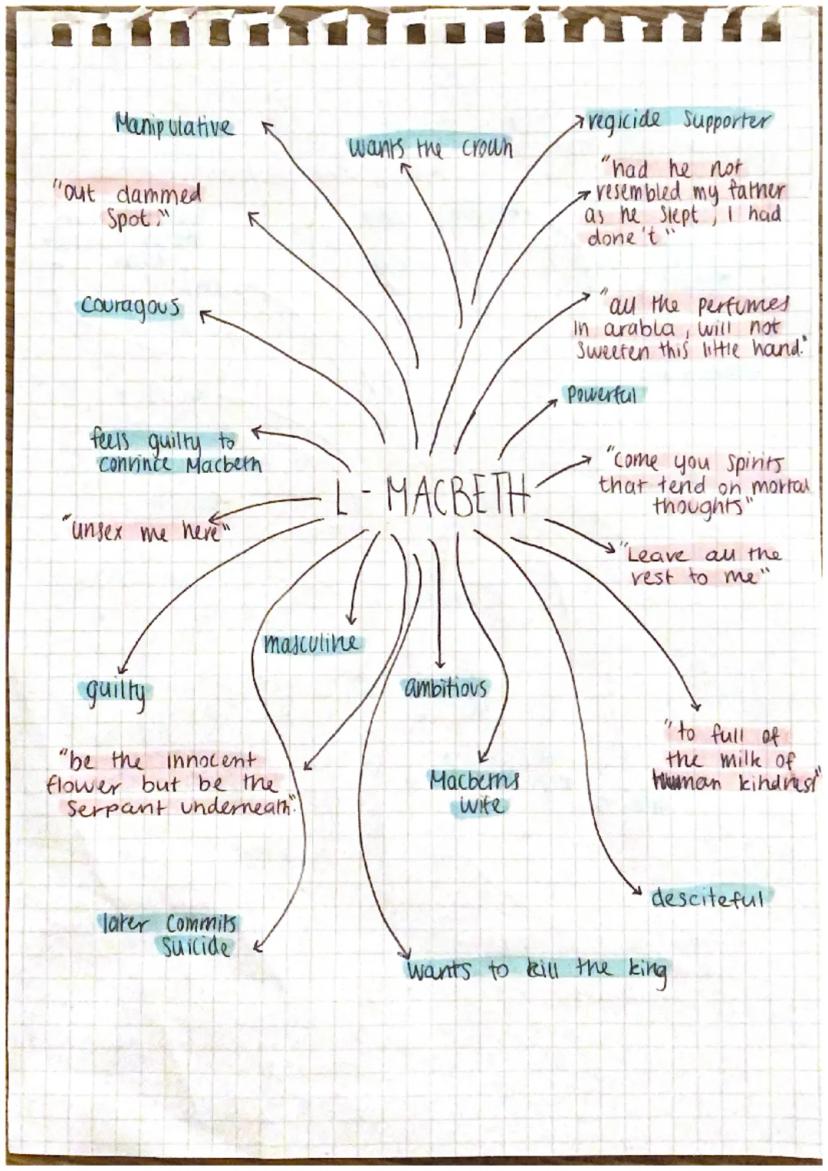 Manipulative
wants the crown
regicide supporter
"out dammed
spot."
"had he not
resembled my father
as he slept, I had
done't"
couragous
"all the perfumes
in arabla, will not
sweeten this little hand."
powerful
feels guilty to
convince Macbeth
L - MACBETH
"come you spirits
that tend on mortal
thoughts"
"unsex me here"
"Leave all the
rest to me"
masculine
guilty
ambitious
"be the innocent
flower but be the
serpant underneath."
Macbeths
wife
"to full of
the milk of
human kindness"
desciteful
later commits
suicide
wants to kill the king